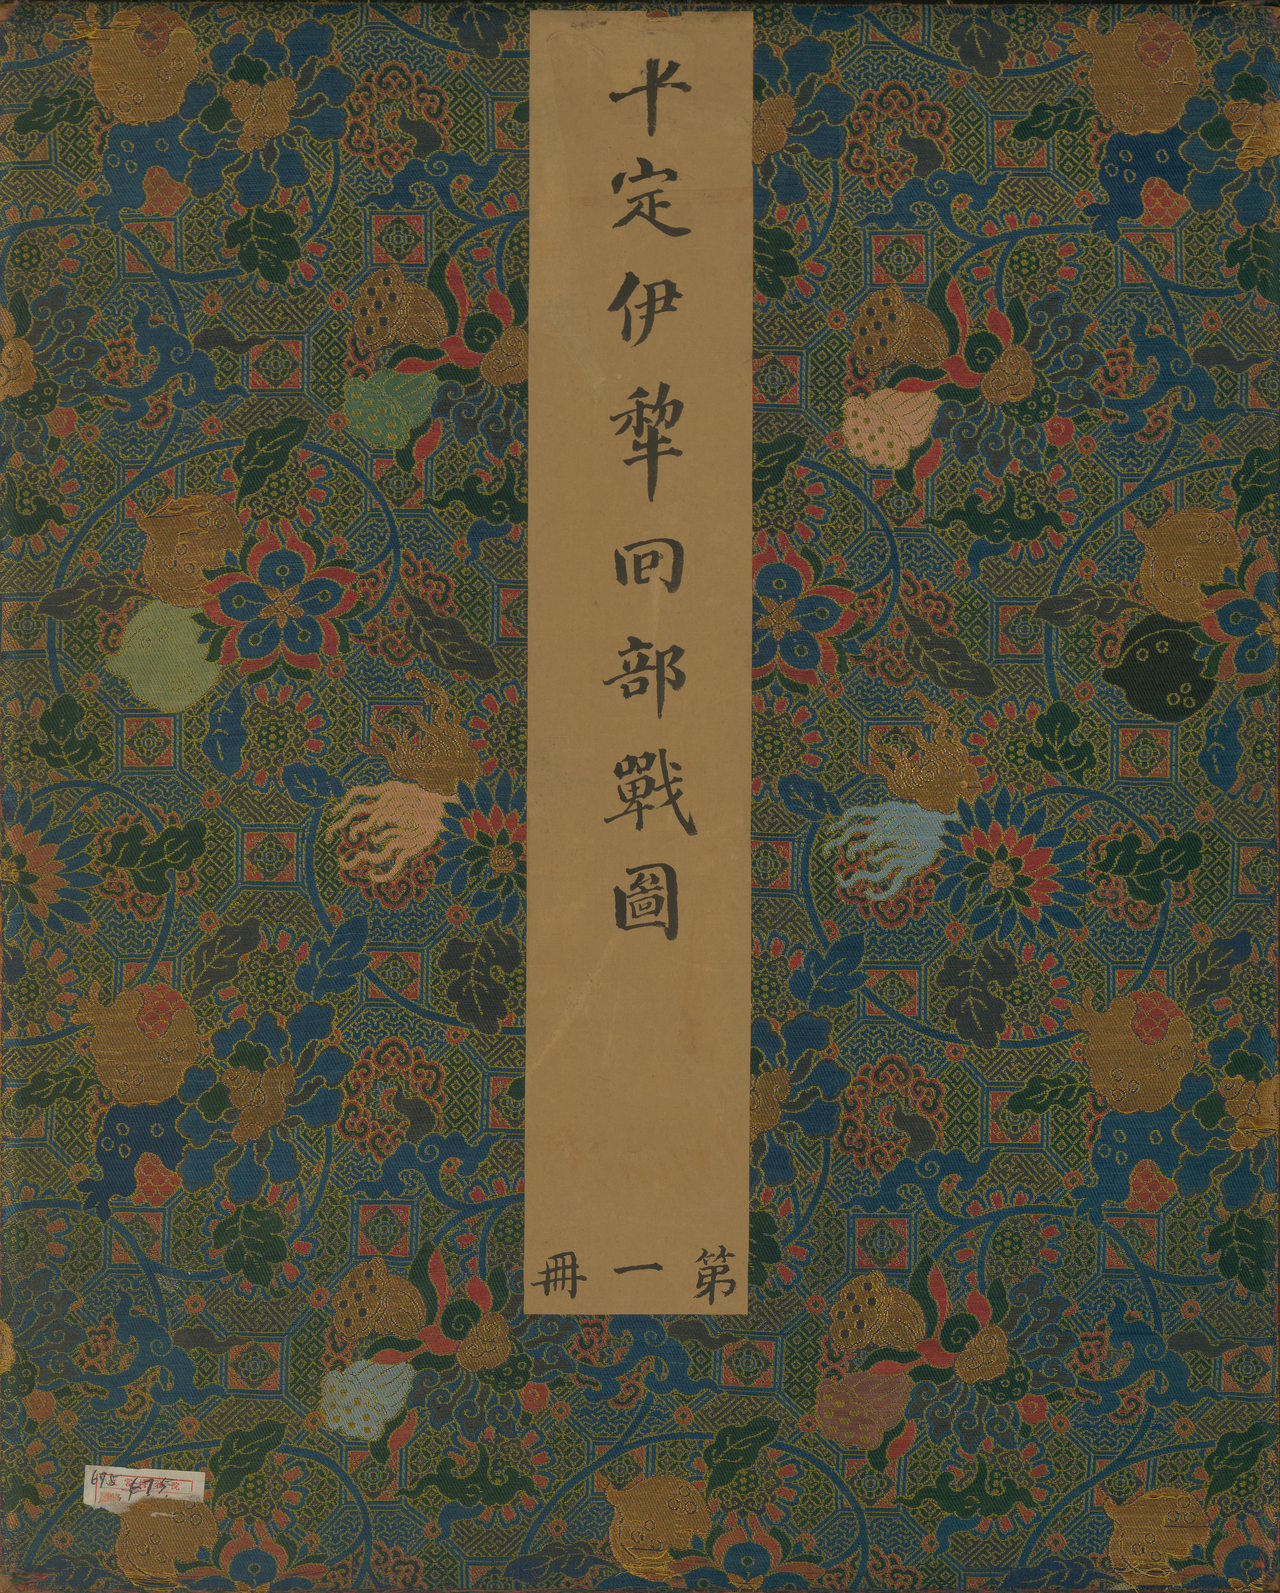 平定伊犂回部戰圖
第一冊
695 695